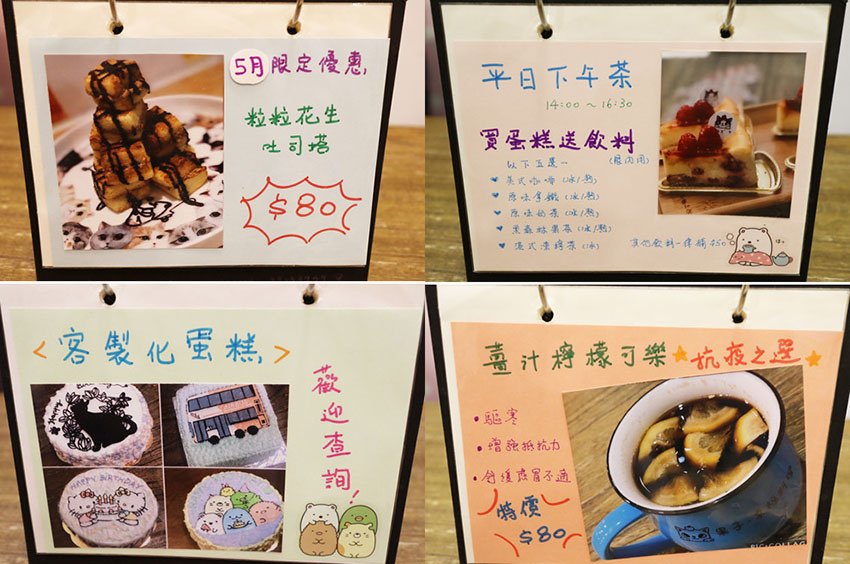 5月限定優惠
粒粒花生
吐司塔
$80
平日下午茶
14:00 ~ 16:30
買蛋糕送飲料
以下五選一
美式咖啡(冰/熱)
原味拿鐵(冰/熱)
原味奶茶(冰/熱)
黑森林果茶(冰/熱)
港式凍檸茶(冰)
其他飲料一律補$50
<客製化蛋糕>
HAPPY BIRTHDAY
歡迎查詢!
薑汁檸檬可樂
抗疫之選
驅寒
增強抵抗力
舒緩感冒不適
特價
$80